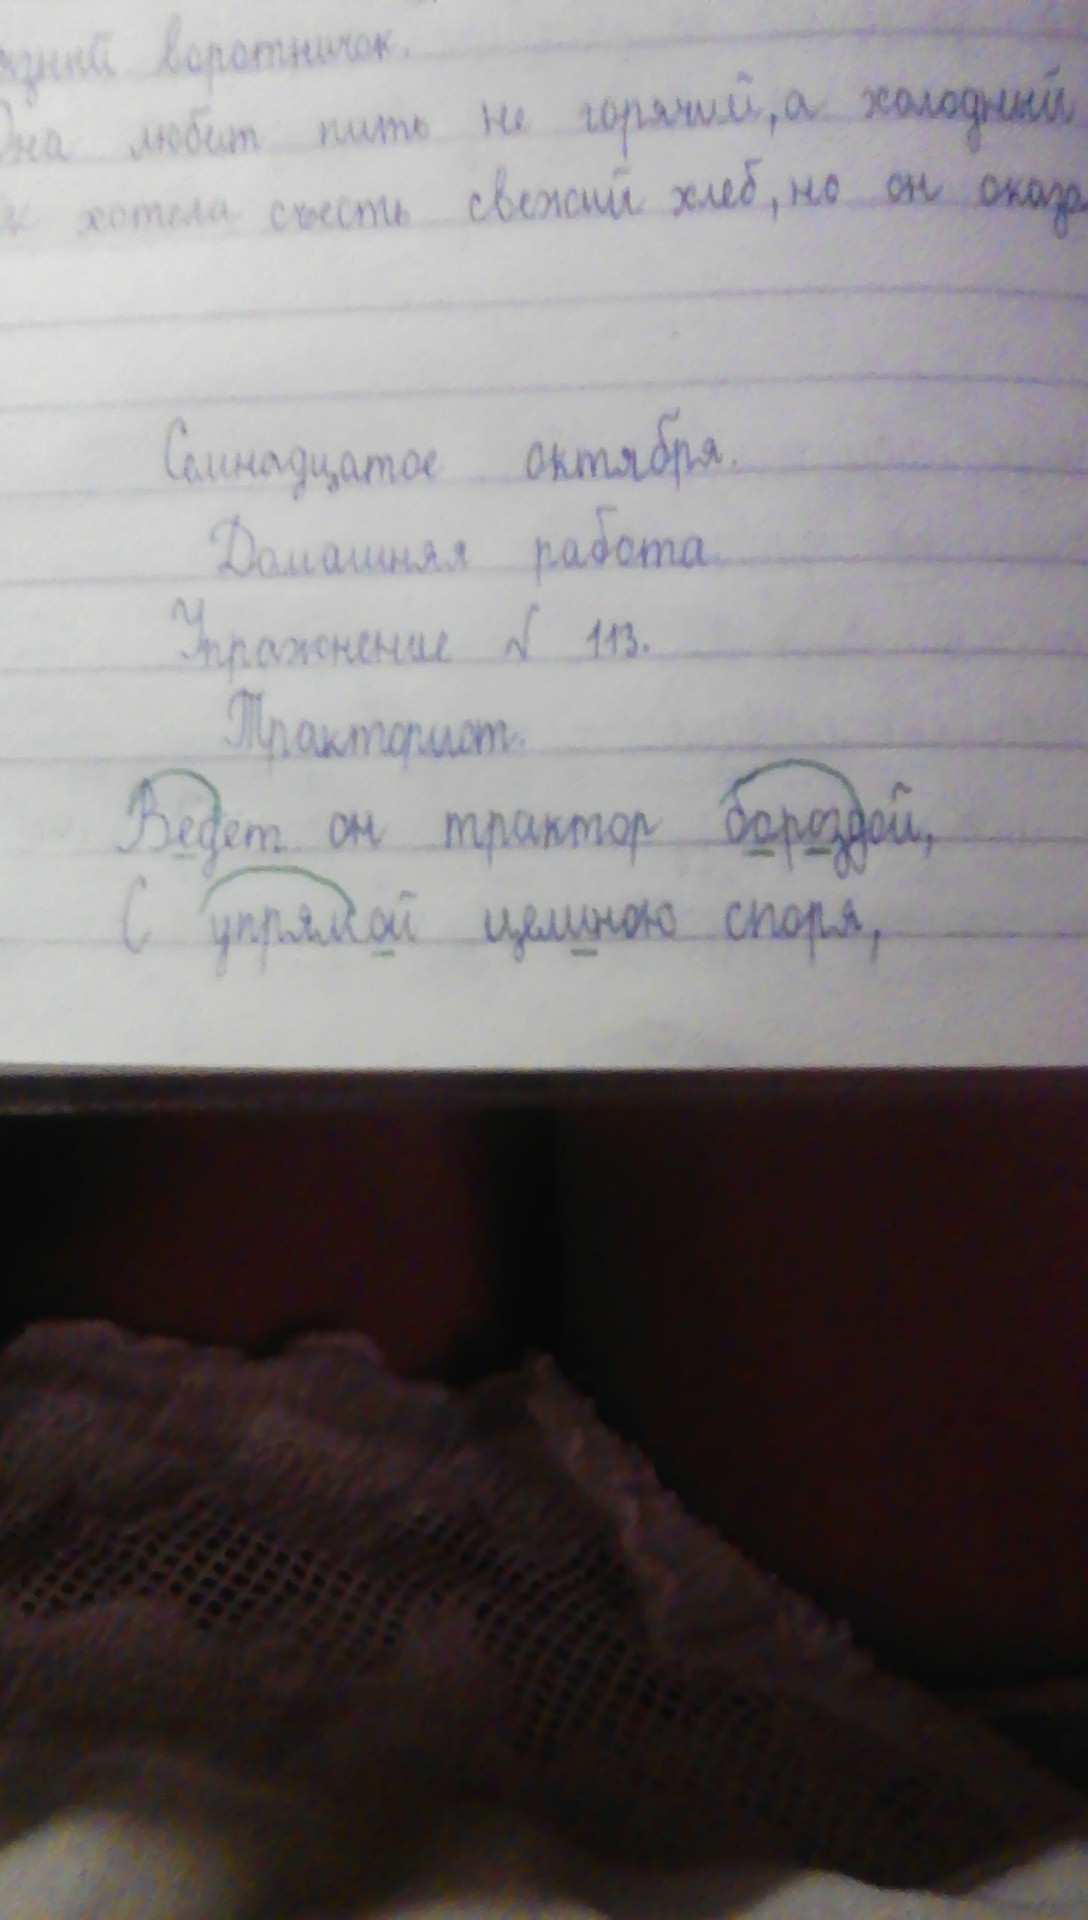 воротничок.
Она любит пить не горячий, а холодный
хотела съесть свежий хлеб, но он оказа
Семнадцатое октября.
Домашняя работа.
Упражнение № 113.
Ведёт он трактор бороздой,
С упрямой целиною споря,